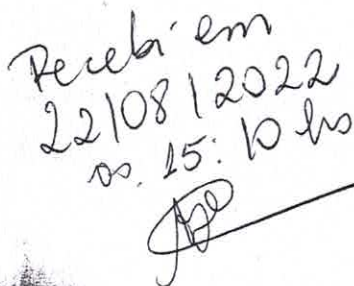 Recebi em
22/08/2022
as. 15:10 hs